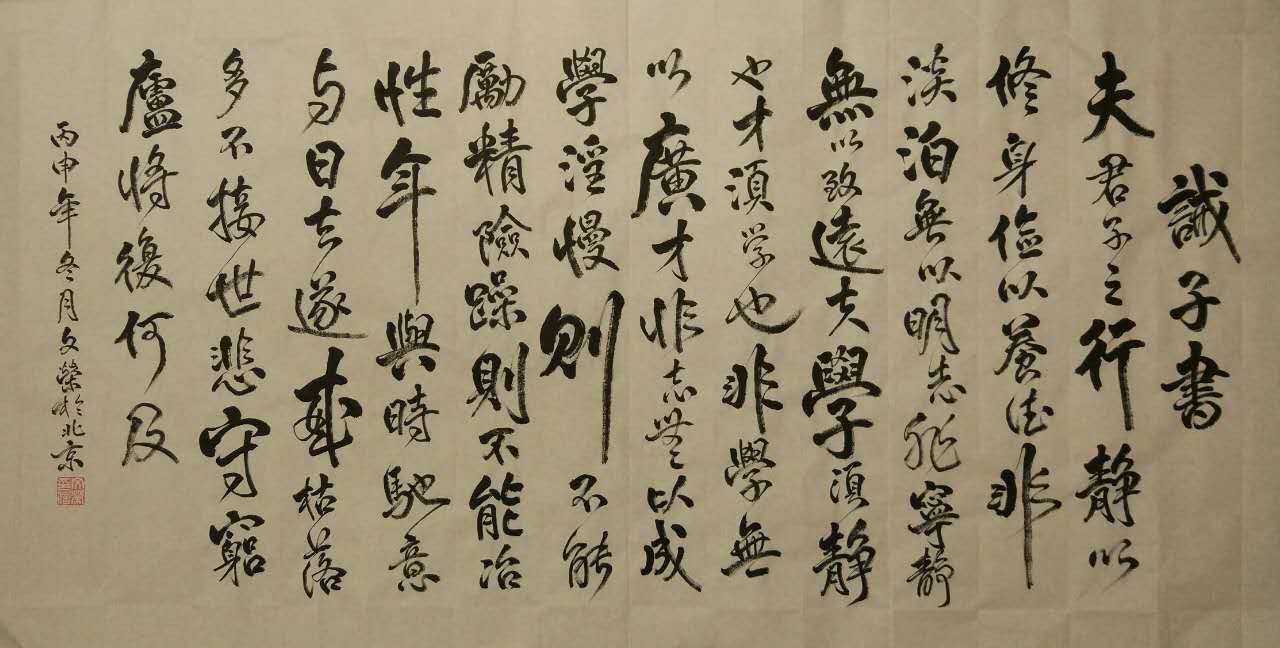 誡子書
夫君子之行静以
修身儉以養德非
淡泊無以明志非寧静
無以致遠夫學須静
也才須学也非學無
以廣才非志無以成
學淫慢則不能
勵精險躁則不能冶
性年與時馳意
与日去遂成枯落
多不接世悲守窮
廬將復何及
丙申年冬月文榮於北京